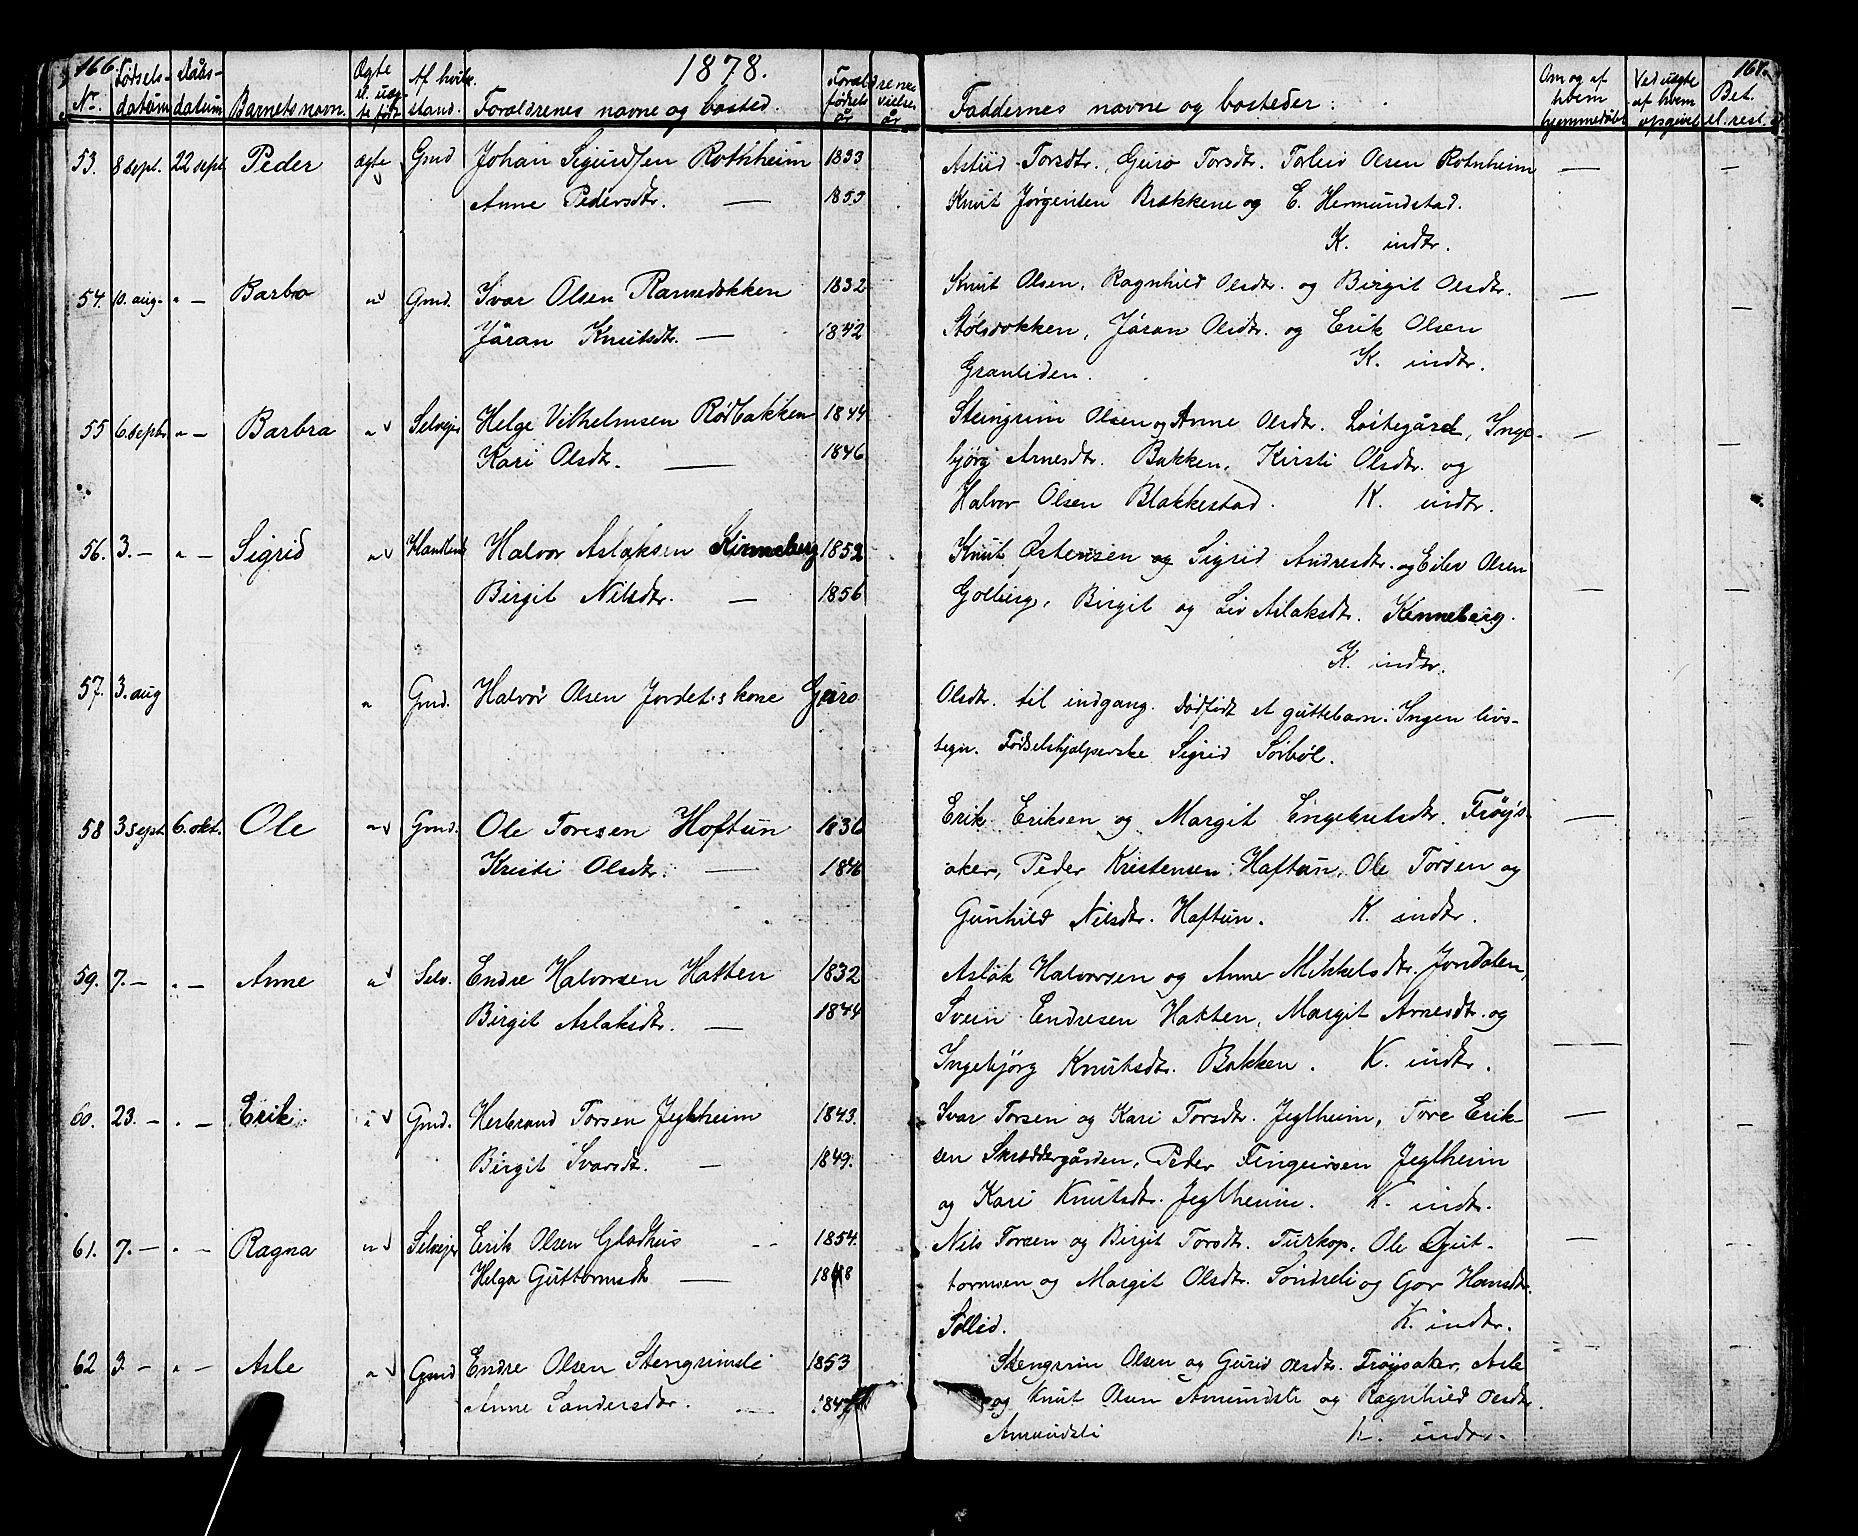 166. 1878. 167.
Nr. Fødsels-datum Dåbs-datum Barnets navn. Ægte el. uæg-te født Af hvilk. stand. Forældrenes navne og bosted. Forældrenes fødsels år vielses år Faddernes navne og bosteder: Om og af hvem hjemmedøbt Ved uægte af hvem opgivet Bet. el. rest.
53. 8 sept. 22 sept. Peder ægte Gmd Johan Sigurdsen Rotnheim 1833 Astrid Torsdtr., Guro Torsdtr. Tolleiv Olsen Rotnheim — —
Anne Pedersdtr. — 1853 Knut Jørgensen Brækkene og E. Hermundstad.
K. indtr.
54. 10. aug. " — Barbro " Gmd. Ivar Olsen Ramsdokken 1832 Knut Olsen, Ragnhild Olsdtr. og Birgit Olsdtr. — —
Jøran Knutsdtr. — 1842 Stølsdokken, Jøran Olsdtr. og Erik Olsen
Granliden. K. indtr.
55 6. septbr " — Barbra " Selvejer Helge Vilhelmsen Rødbakken 1844 Steingrim Olsen og Anne Olsdtr. Løitegård, Inge- — —
Kari Olsdtr. — 1846 bjørg Arnesdtr. Bakken, Kirsti Olsdtr. og
Halvor Olsen Blakkestad. K. indtr.
56. 3. — " — Sigrid " Halvor Aslaksen Kinneberg 1852 Knut Østensen og Sigrid Andresdtr. og Eilev Olsen
Birgit Nilsdtr. — 1856 Golberg, Birgit og Liv Aslaksdtr. Kinneberg. — —
K. indtr.
57. 3. aug " Gmd. Halvor Olsen Jordet's kone Guro Olsdtr. til indgang. Dødfødt et guttebarn. Ingen livs-
tegn. Fødselshjælperske Sigrid Sørbøl.
58 3 sept. 6. okt. Ole " Gmd. Ole Toresen Hoftun 1836 Erik Eriksen og Margit Engebretsdtr. Trøys- — —
Kristi Olsdtr. — 1846 aker, Peder Kristensen Haftun, Ole Torsen og
Gunhild Nilsdtr. Haftun. K. indtr.
59. 7. — " — Anne " Selv. Endre Halvorsen Hatten 1832 Aslak Halvorsen og Anne Mikkelsdtr. Jordalen,
Birgit Aslaksdtr. — 1844 Svein Endresen Hatten, Margit Arnesdtr. og
Ingebjørg Knutsdtr. Bakken. K. indtr. — —
60. 23. — " — Erik " Gmd. Herbrand Torsen Jeglheim 1843. Ivar Torsen og Kari Torsdtr. Jeglheim, Tore Erik- — —
Birgit Ivarsdt. — 1849. sen Skræddergården, Peder Fingarsen Jeglheim
og Kari Knutsdtr. Jeglheim. K. indtr.
61. 7. — " — Ragna " Selvejer Erik Olsen Gladhus — 1854. Nils Torsen og Birgit Torsdtr. Turkop, Ole Gut- — —
Helga Guttormsdt — 1848 tormsen og Margit Olsdtr. Søndreli og Gor Hansdtr.
Sollid. K. indtr.
62 3. — " — Asle " Gmd Endre Olsen Stengrimsli 1853 Stengrim Olsen og Gurid Olsdtr. Trøysaker, Asle — —
Anne Sandersdtr. — 1847 og Knut Olsen Amundsli og Ragnhild Olsdtr.
Amundsli K. indtr.